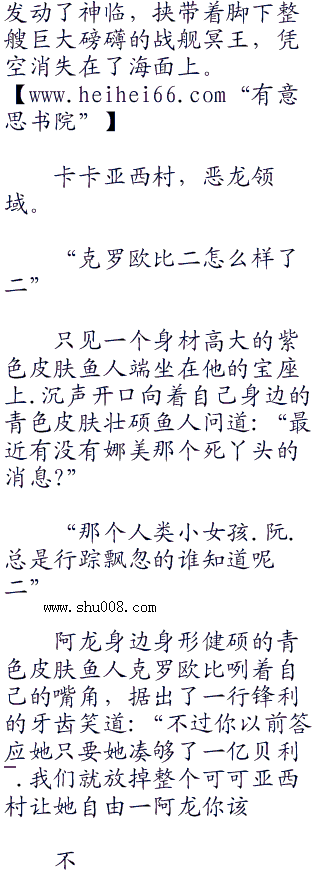 发动了神临，挟带着脚下整
艘巨大磅礴的战舰冥王，凭
空消失在了海面上。
【www.heihei66.com“有意
思书院”】
卡卡亚西村，恶龙领
域。
“克罗欧比二怎么样了
二”
只见一个身材高大的紫
色皮肤鱼人端坐在他的宝座
上.沉声开口向着自己身边的
青色皮肤壮硕鱼人问道：“最
近有没有娜美那个死丫头的
消息?”
“那个人类小女孩.阮.
总是行踪飘忽的谁知道呢
二”
www.shu008.com
阿龙身边身形健硕的青
色皮肤鱼人克罗欧比咧着自
己的嘴角，据出了一行锋利
的牙齿笑道：“不过你以前答
应她只要她凑够了一亿贝利
.我们就放掉整个可可亚西
村让她自由一阿龙你该
不